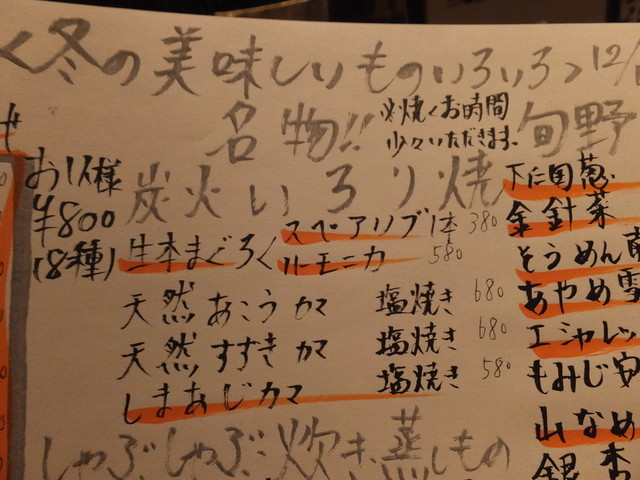 く冬の美味しいものいろいろ 12/
名物!! 炭火いろり焼
※焼くお時間
少々いただきます。
お1人様
¥800
(8種)
スペアリブ 1本 380
生本まぐろ ハーモニカ 580
天然あこうカマ 塩焼き 680
天然すずきカマ 塩焼き 680
しまあじカマ 塩焼き 580
しゃぶしゃぶ 炊き 蒸しもの
せ
旬野
下仁田葱
金針菜
そうめん南
あやめ雪
エシャレッ
もみじ安
山なめ
銀杏